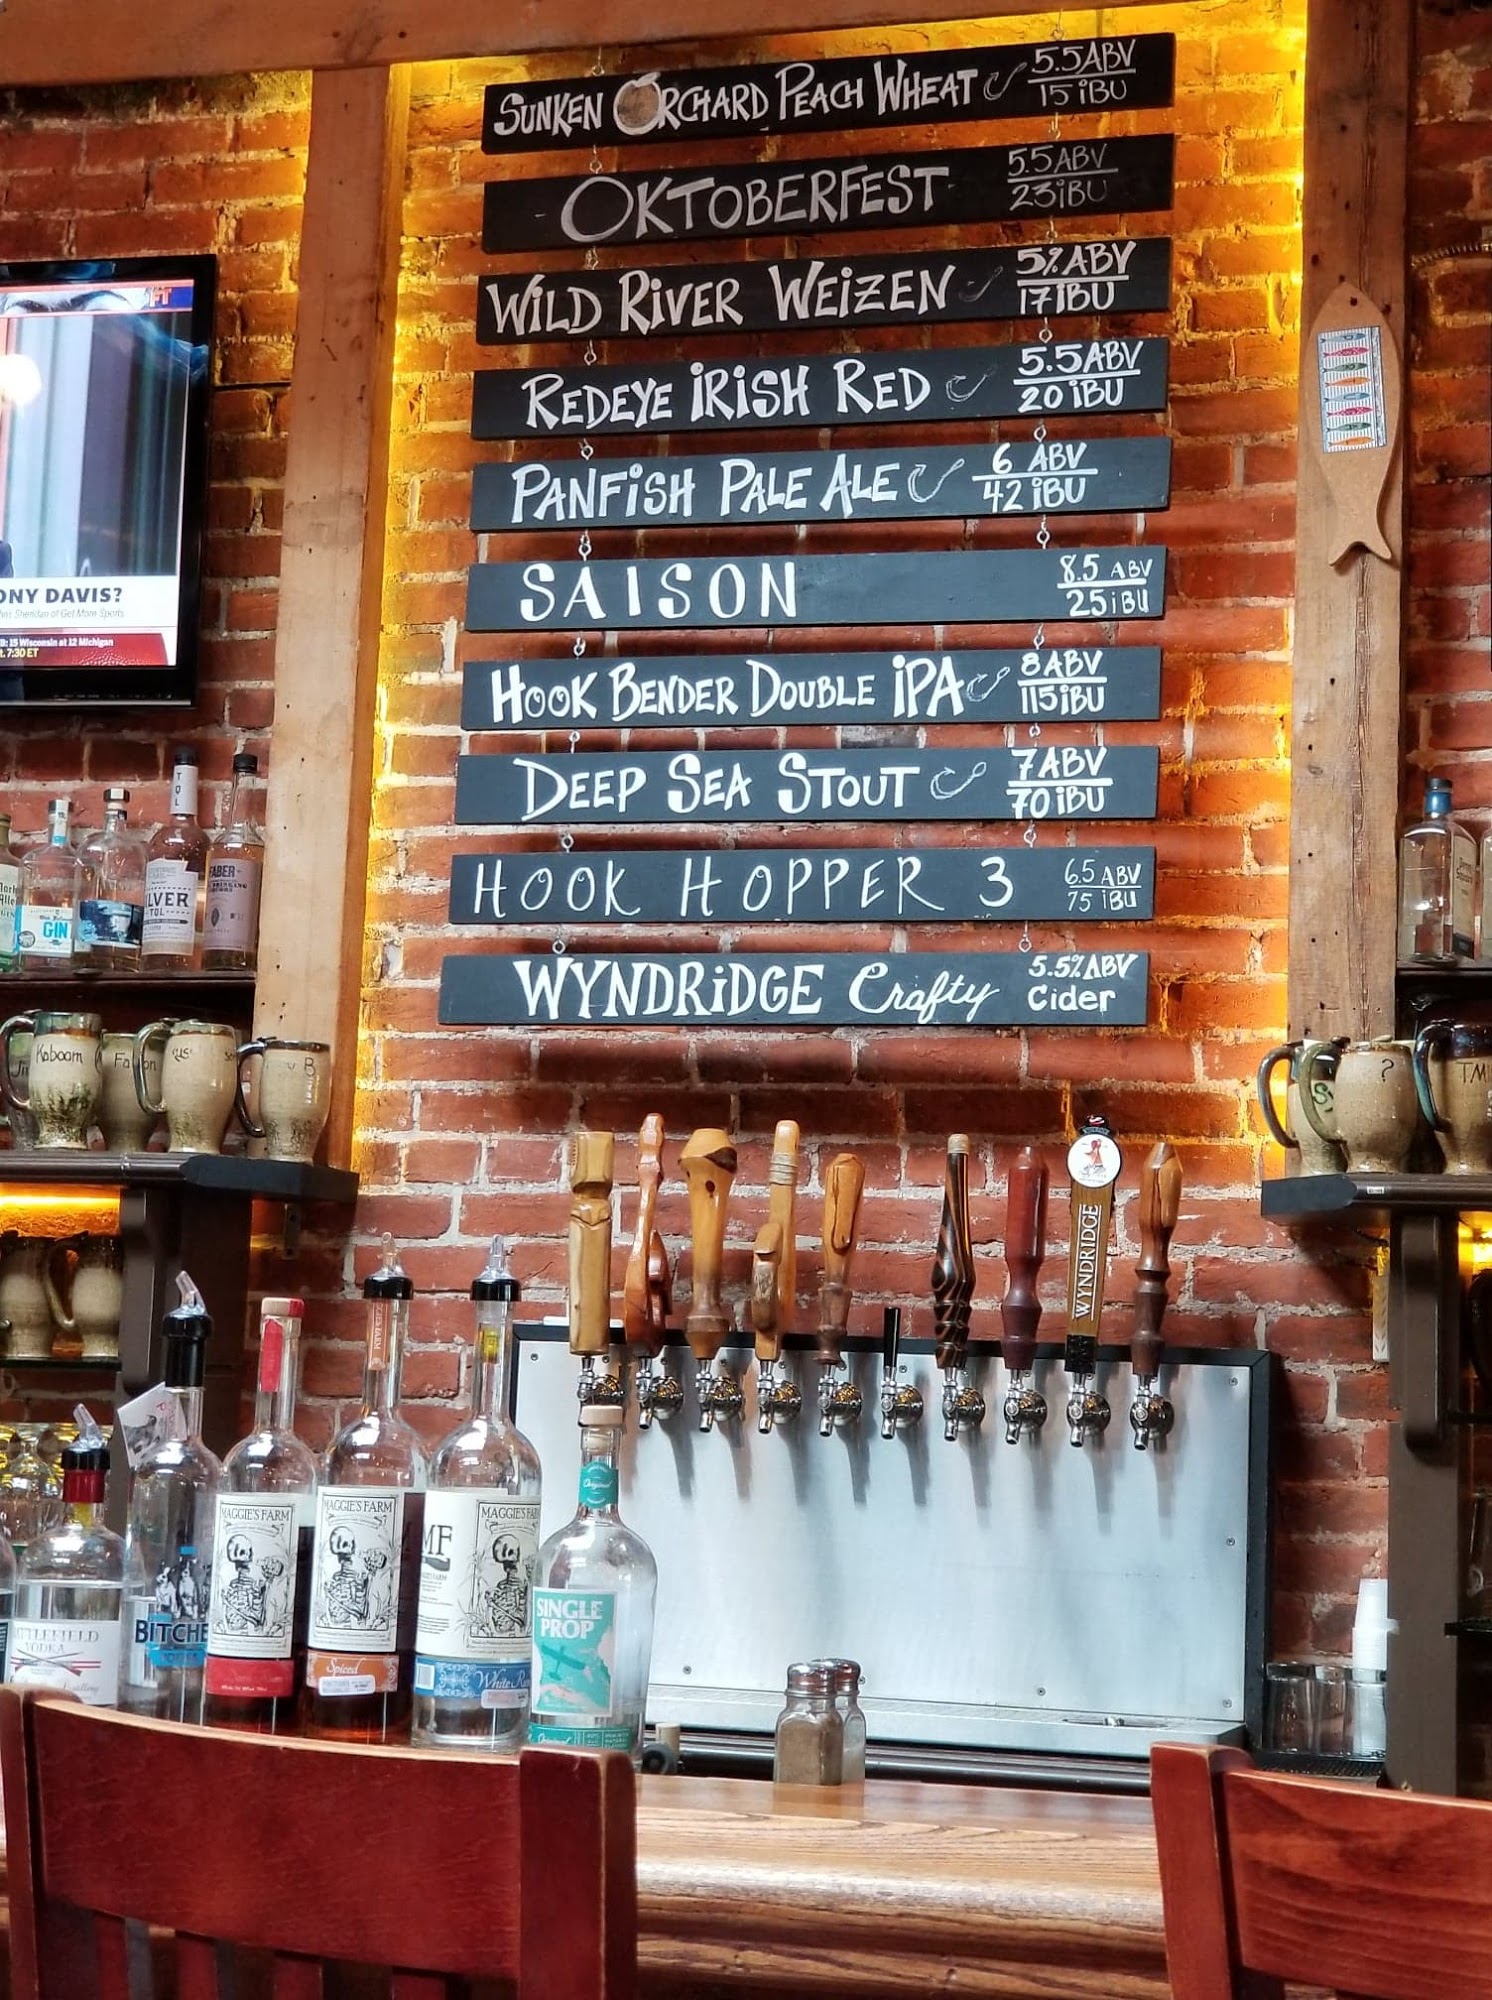 SUNKEN ORCHARD PEACH WHEAT 5.5ABV
15 iBU
OKTOBERFEST 5.5ABV
23iBU
WiLD RiVER WEiZEN 5%ABV
17IBU
REDEYE iRiSH RED 5.5ABV
20 iBU
PANFiSH PALE ALE 6 ABV
42 iBU
SAISON 8.5 ABV
25iBU
HOOK BENDER DOUBLE iPA 8ABV
115iBU
DEEP SEA STOUT 7ABV
70iBU
HOOK HOPPER 3 6.5 ABV
75 iBU
WYNDRiDGE Crafty 5.5%ABV
Cider
FT
ONY DAVIS?
Sheridan of Get More Sports
B: 15 Wisconsin at 12 Michigan
t. 7:30 ET
TQL
GIN
LVER
TQL
FABER
Kaboom
Fa on
B
?
TM
WYNDRIDGE
MAGGIE'S FARM
MAGGIE'S FARM
Spiced
MF
MAGGIE'S FARM
White
Original
SINGLE
PROP
BITCHE
TTLEFIELD
VODKA